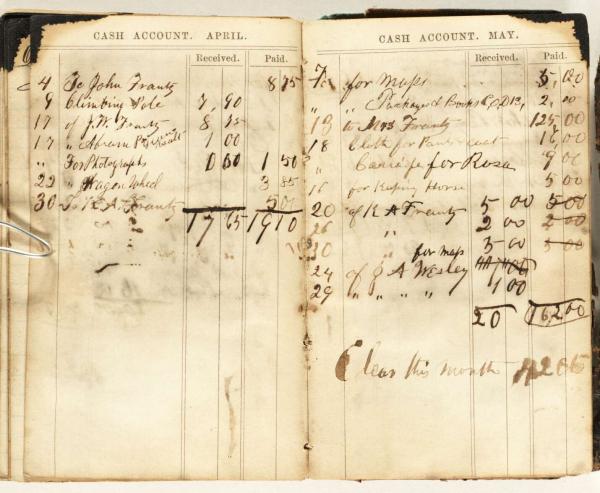 CASH ACCOUNT. APRIL.
Received. Paid.
4 To John Frantz 8 75
9 Climbing Pole 7, 90
17 of J. W. Frantz 8 75
17 " Abram 1 00
" For Photographs 1 50
22 " Wagon Wheel 3 85
30 To K. A. Frantz 5 00
17 65 19 10
CASH ACCOUNT. MAY.
Received. Paid.
7. for Maps 5, 00
" " Packages & Books 2, 00
13 to Mrs Frantz 125 00
18 Cloth for Pants 16, 00
" for Rosa 9 00
for Keeping Horse 5 00
20 of K A Frantz 5 00 5 00
26 " 2 00 2 00
" for maps 5 00 5 00
24 of J A Wesley
29 " " " " 1 00
20 162 00
Clear this month